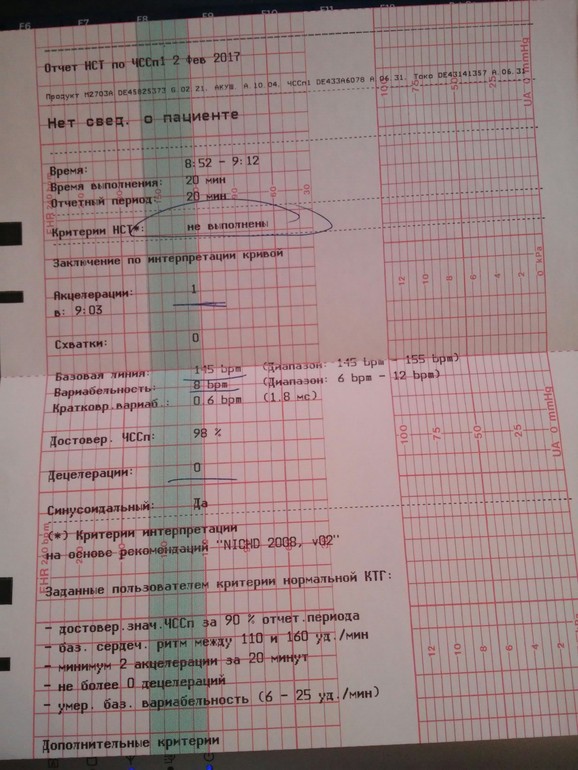 Отчет НСТ по ЧССп1 2 Фев 2017
Продукт M2703A DE45825373 G.02.21. АКУШ. A.10.04. ЧССп1 DE433A6078 A.06.31. Токо DE43141357 A.06.31
Нет свед. о пациенте
Время: 8:52 - 9:12
Время выполнения: 20 мин
Отчетный период: 20 мин
Критерии НСТ*: не выполнены
Заключение по интерпретации кривой
Акцелерации: 1
в: 9:03
Схватки: 0
Базовая линия: 145 bpm (Диапазон: 145 bpm - 155 bpm)
Вариабельность: 8 bpm (Диапазон: 6 bpm - 12 bpm)
Кратковр.вариаб.: 0.6 bpm (1.8 мс)
Достовер. ЧССп: 98 %
Децелерации: 0
Синусоидальный: Да
(*) Критерии интерпретации
на основе рекомендаций "NICHD 2008, v02"
Заданные пользователем критерии нормальной КТГ:
- достовер.знач.ЧССп за 90 % отчет.периода
- баз. сердеч. ритм между 110 и 160 уд./мин
- минимум 2 акцелерации за 20 минут
- не более 0 децелераций
- умер. баз. вариабельность (6 - 25 уд./мин)
Дополнительные критерии